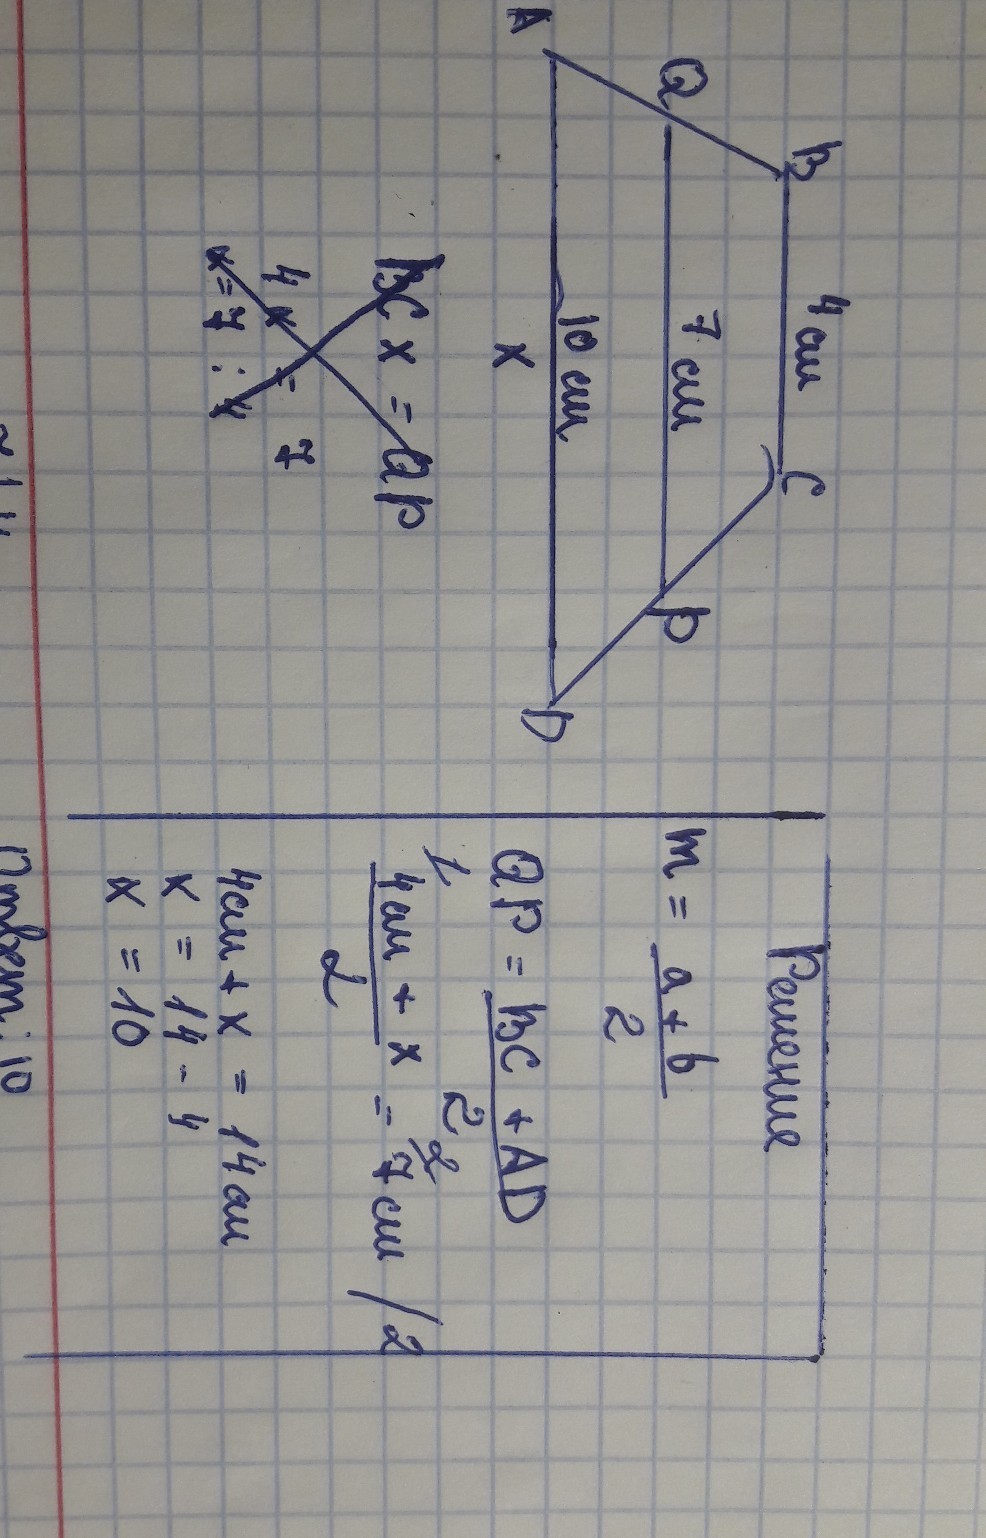 B 4 см C
Q 7 см P
10 см
A x D
BC x = QP
4 x = 7
x = 7 : 4
Решение
m = a + b
2
QP = BC + AD
2
1 2
4см + x = 7см /2
2
4см + x = 14см
x = 14 - 4
x = 10
Ответ: 10